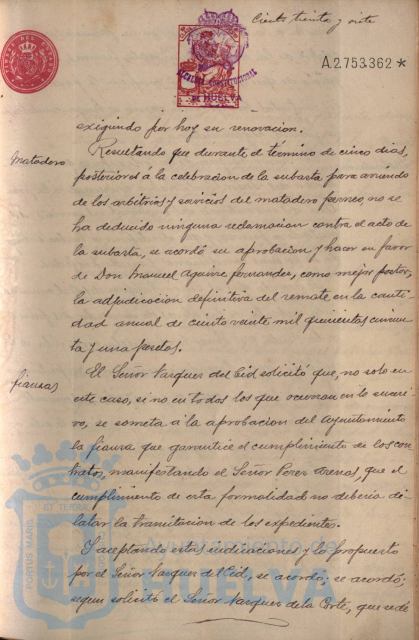 Ciento treinta y siete
A2753362*
ALCALDIA CONSTITUCIONAL
HUELVA
exigiendo por hoy su renovacion.
Matadero
Resultando que durante el término de cinco dias,
posteriores a la celebracion de la subasta para arriendo
de los arbitrios y servicios del matadero publico, no se
ha deducido ninguna reclamacion contra el acto de
la subasta, se acordó su aprobacion y hacer en favor
de Don Manuel Aguirre Fernandez, como mejor postor,
la adjudicacion definitiva del remate en la canti
dad anual de ciento veinte mil quinientas cincuen
ta y una pesetas.
fianzas
El Señor Vazquez del Cid solicitó que, no solo en
este caso, si no en todos los que ocurran en lo sucesi
vo, se someta á la aprobacion del Ayuntamiento
la fianza que garantice el cumplimiento de los con
tratos, manifestando el Señor Perez Arenas, que el
cumplimiento de esta formalidad no deberia di
latar la tramitacion de los expedientes.
Y aceptando estas indicaciones y lo propuesto
por el Señor Vazquez del Cid, se acordó; se acordó;
segun solicitó el Señor Vazquez de la Corte, que se de
PORTUS MARIS
ET TERRAE
Ayuntamiento de
HUELVA